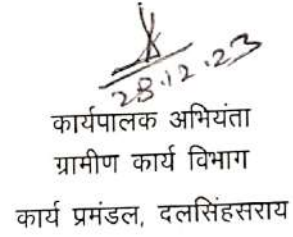 28.12.23
कार्यपालक अभियंता
ग्रामीण कार्य विभाग
कार्य प्रमंडल, दलसिंहसराय